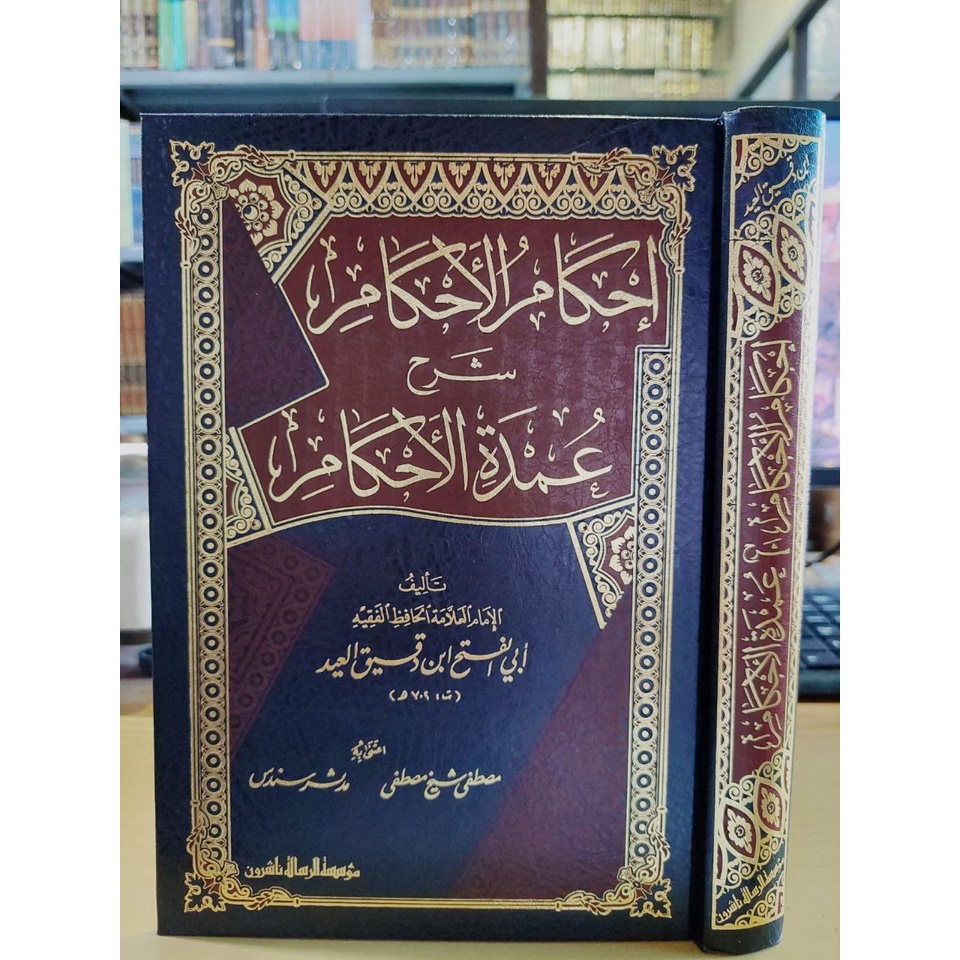 إِحْكَامُ الأَحْكَامِ
شَرْحُ
عُمْدَةِ الأَحْكَامِ
تَأليفُ
الإمَام العَلَّامَة الحَافِظِ الفَقِيْهِ
أبي الفتح ابن دقيق العيد
(ت: ٧٠٢هـ)
اعتَنَى بِهِ
مصطفى شيخ مصطفى    مدثر سندس
مؤسسة الرسالة ناشرون
ابن دقيق العيد
إِحْكَامُ الأَحْكَامِ شَرْحُ عُمْدَةِ الأَحْكَامِ
مؤسسة الرسالة ناشرون